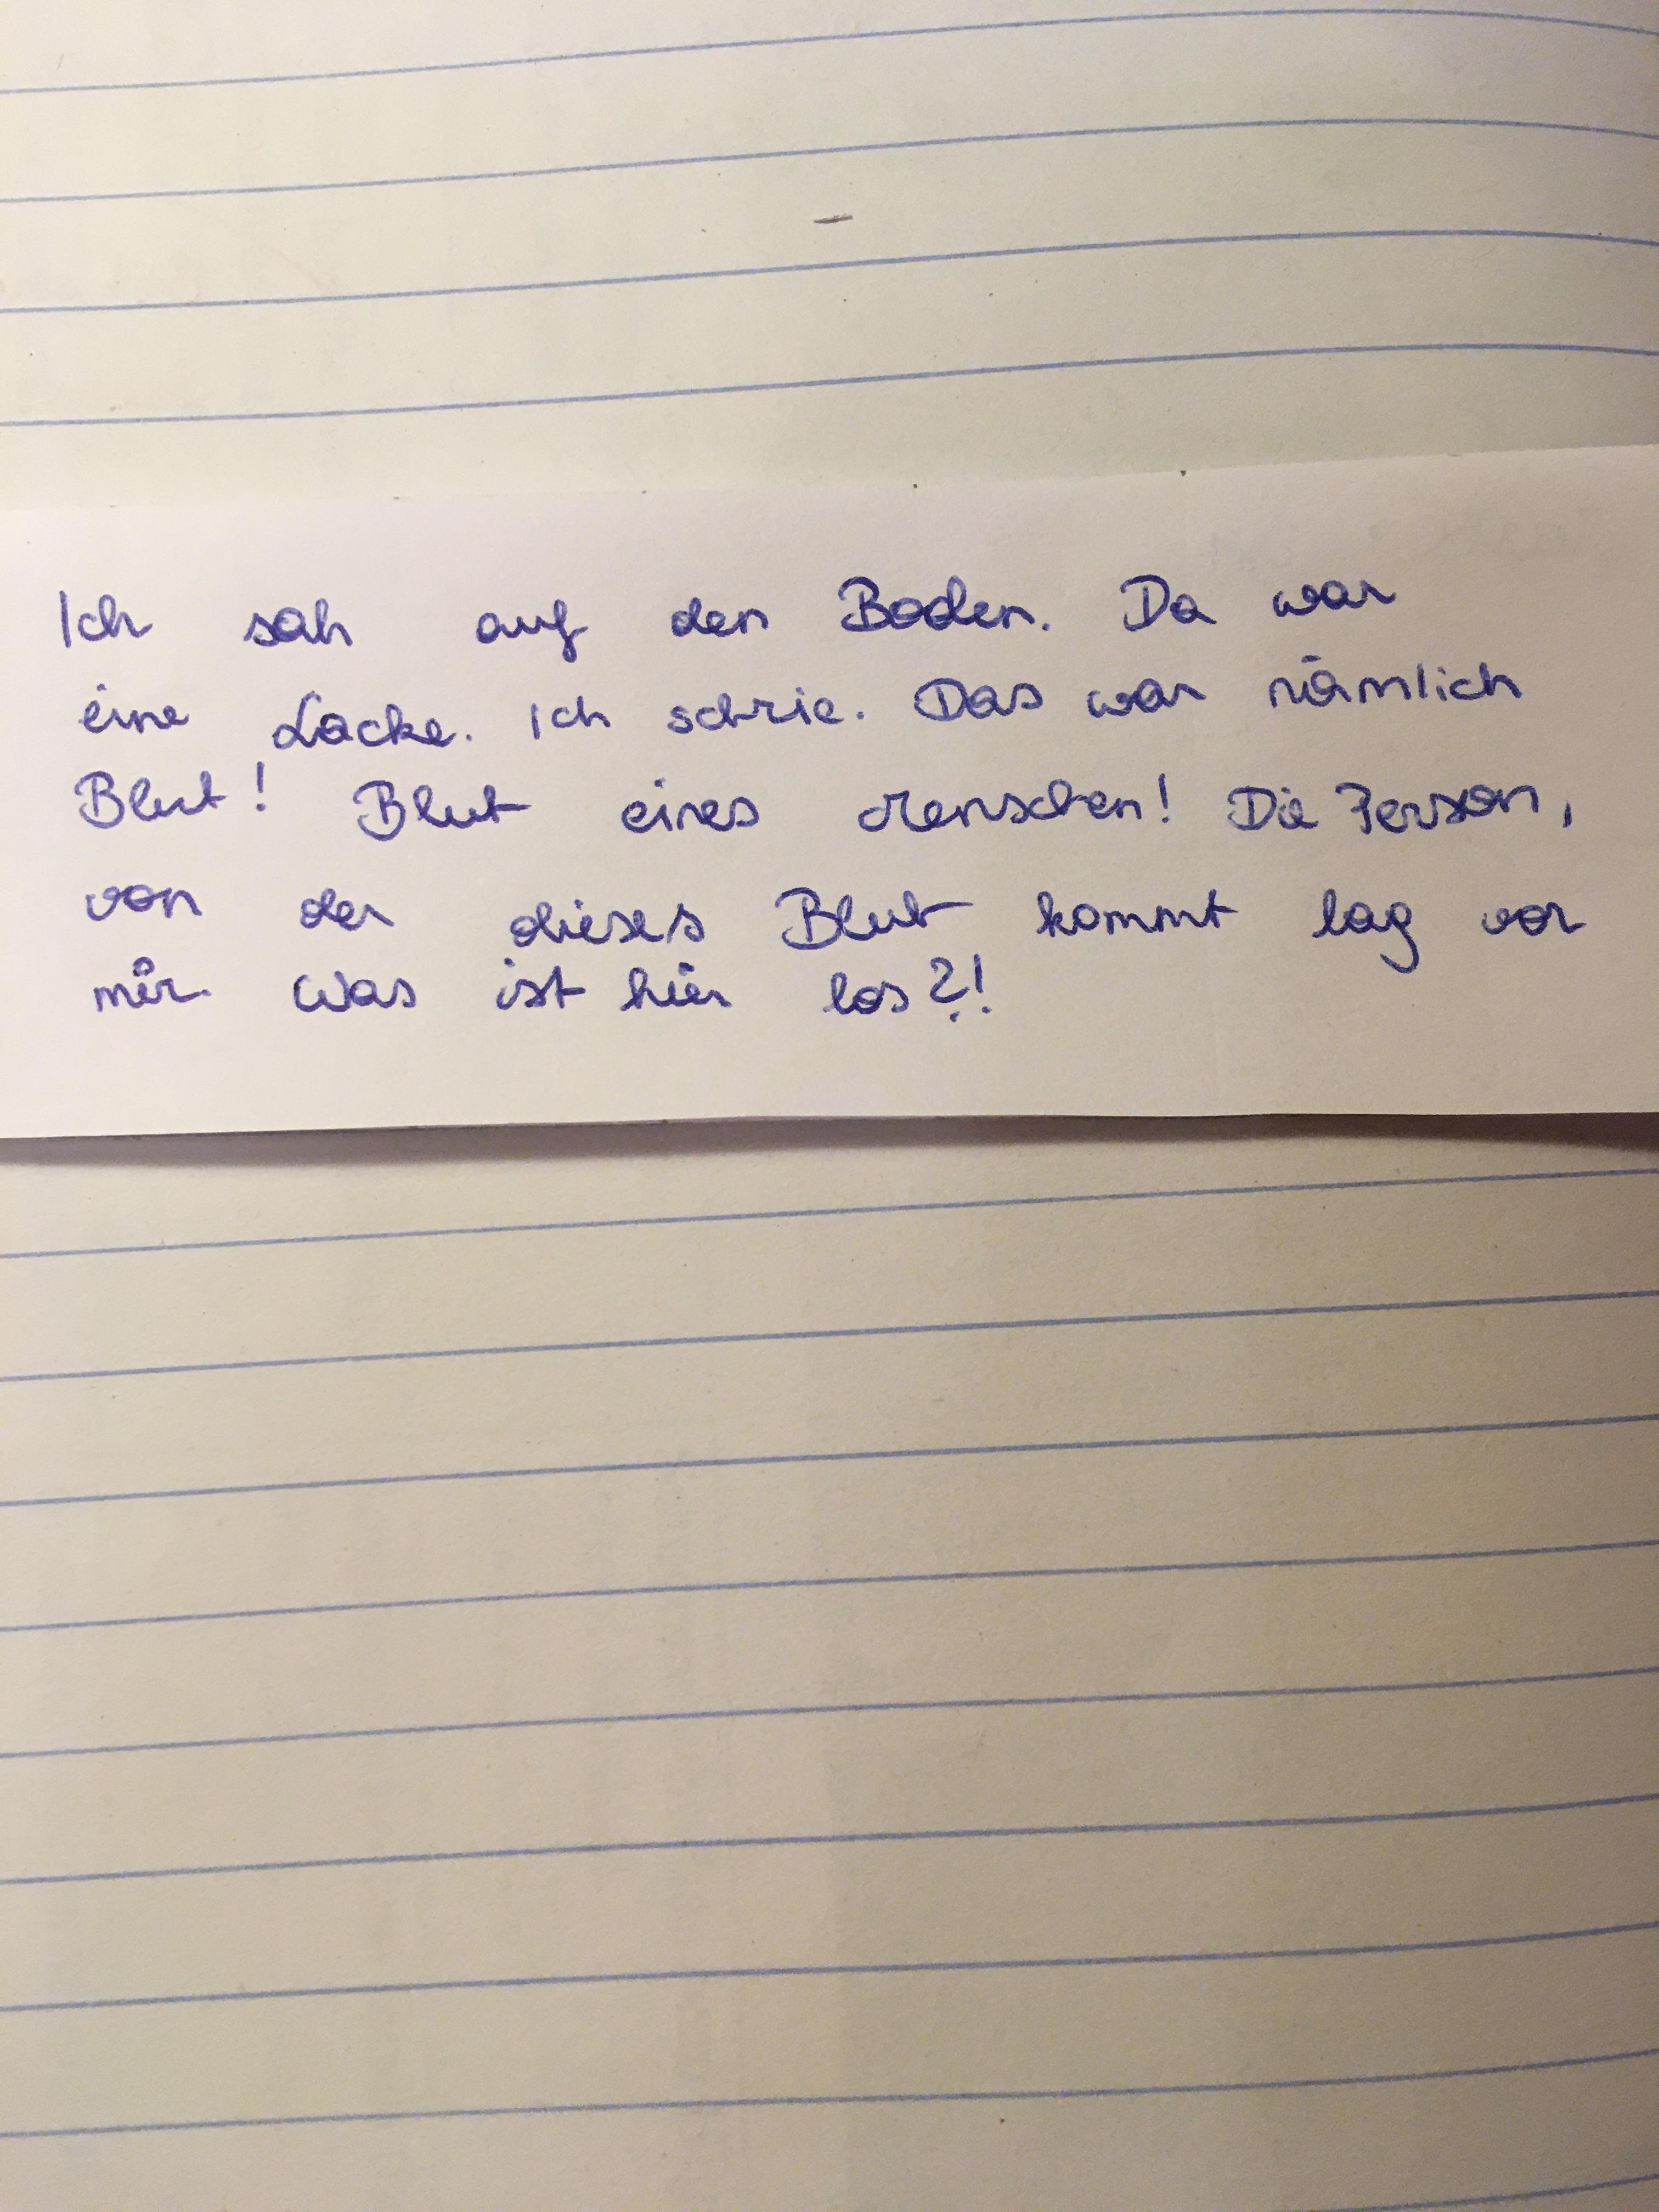 Ich sah auf den Boden. Da war
eine Lacke. Ich schrie. Das war nämlich
Blut! Blut eines Menschen! Die Person,
von der dieses Blut kommt lag vor
mir. Was ist hier los?!